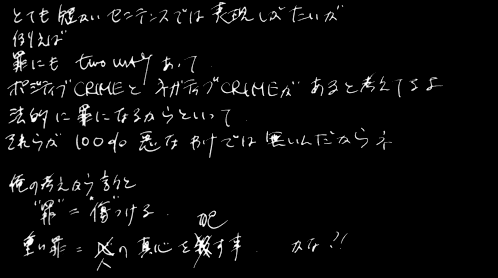 とても短かいセンテンスでは表現しがたいが
例えば
罪にも two way あって
ポジティブCRIMEとネガティブCRIMEがあると考えてるよ
法的に罪になるからといって
それらが100%悪なわけでは無いんだからネ
俺の考えから言うと
"罪" = "傷"つける
重い罪 = 人の真心を殺す事 かな?!